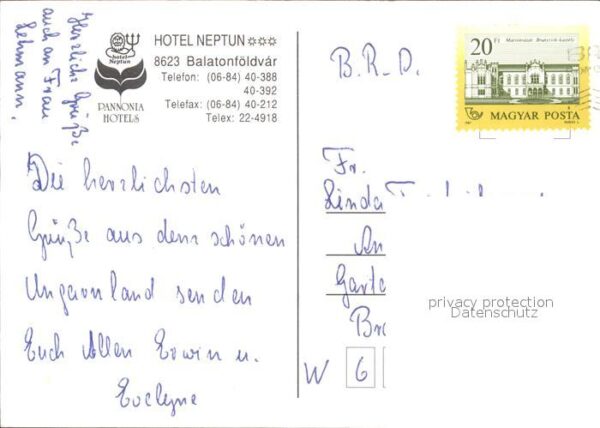 Herzliche Grüße
auch an Frau
Lehmann.
hotel
Neptun
PANNONIA
HOTELS
HOTEL NEPTUN
8623 Balatonföldvár
Telefon: (06-84) 40-388
40-392
Telefax: (06-84) 40-212
Telex: 22-4918
Die herzlichsten
Grüße aus dem schönen
Ungarnland senden
Euch Allen Erwin u.
Evelyne
B.R.D.
20 Ft
MAGYAR POSTA
Fr.
Linda
An
Garte
Br
W 6
privacy protection
Datenschutz